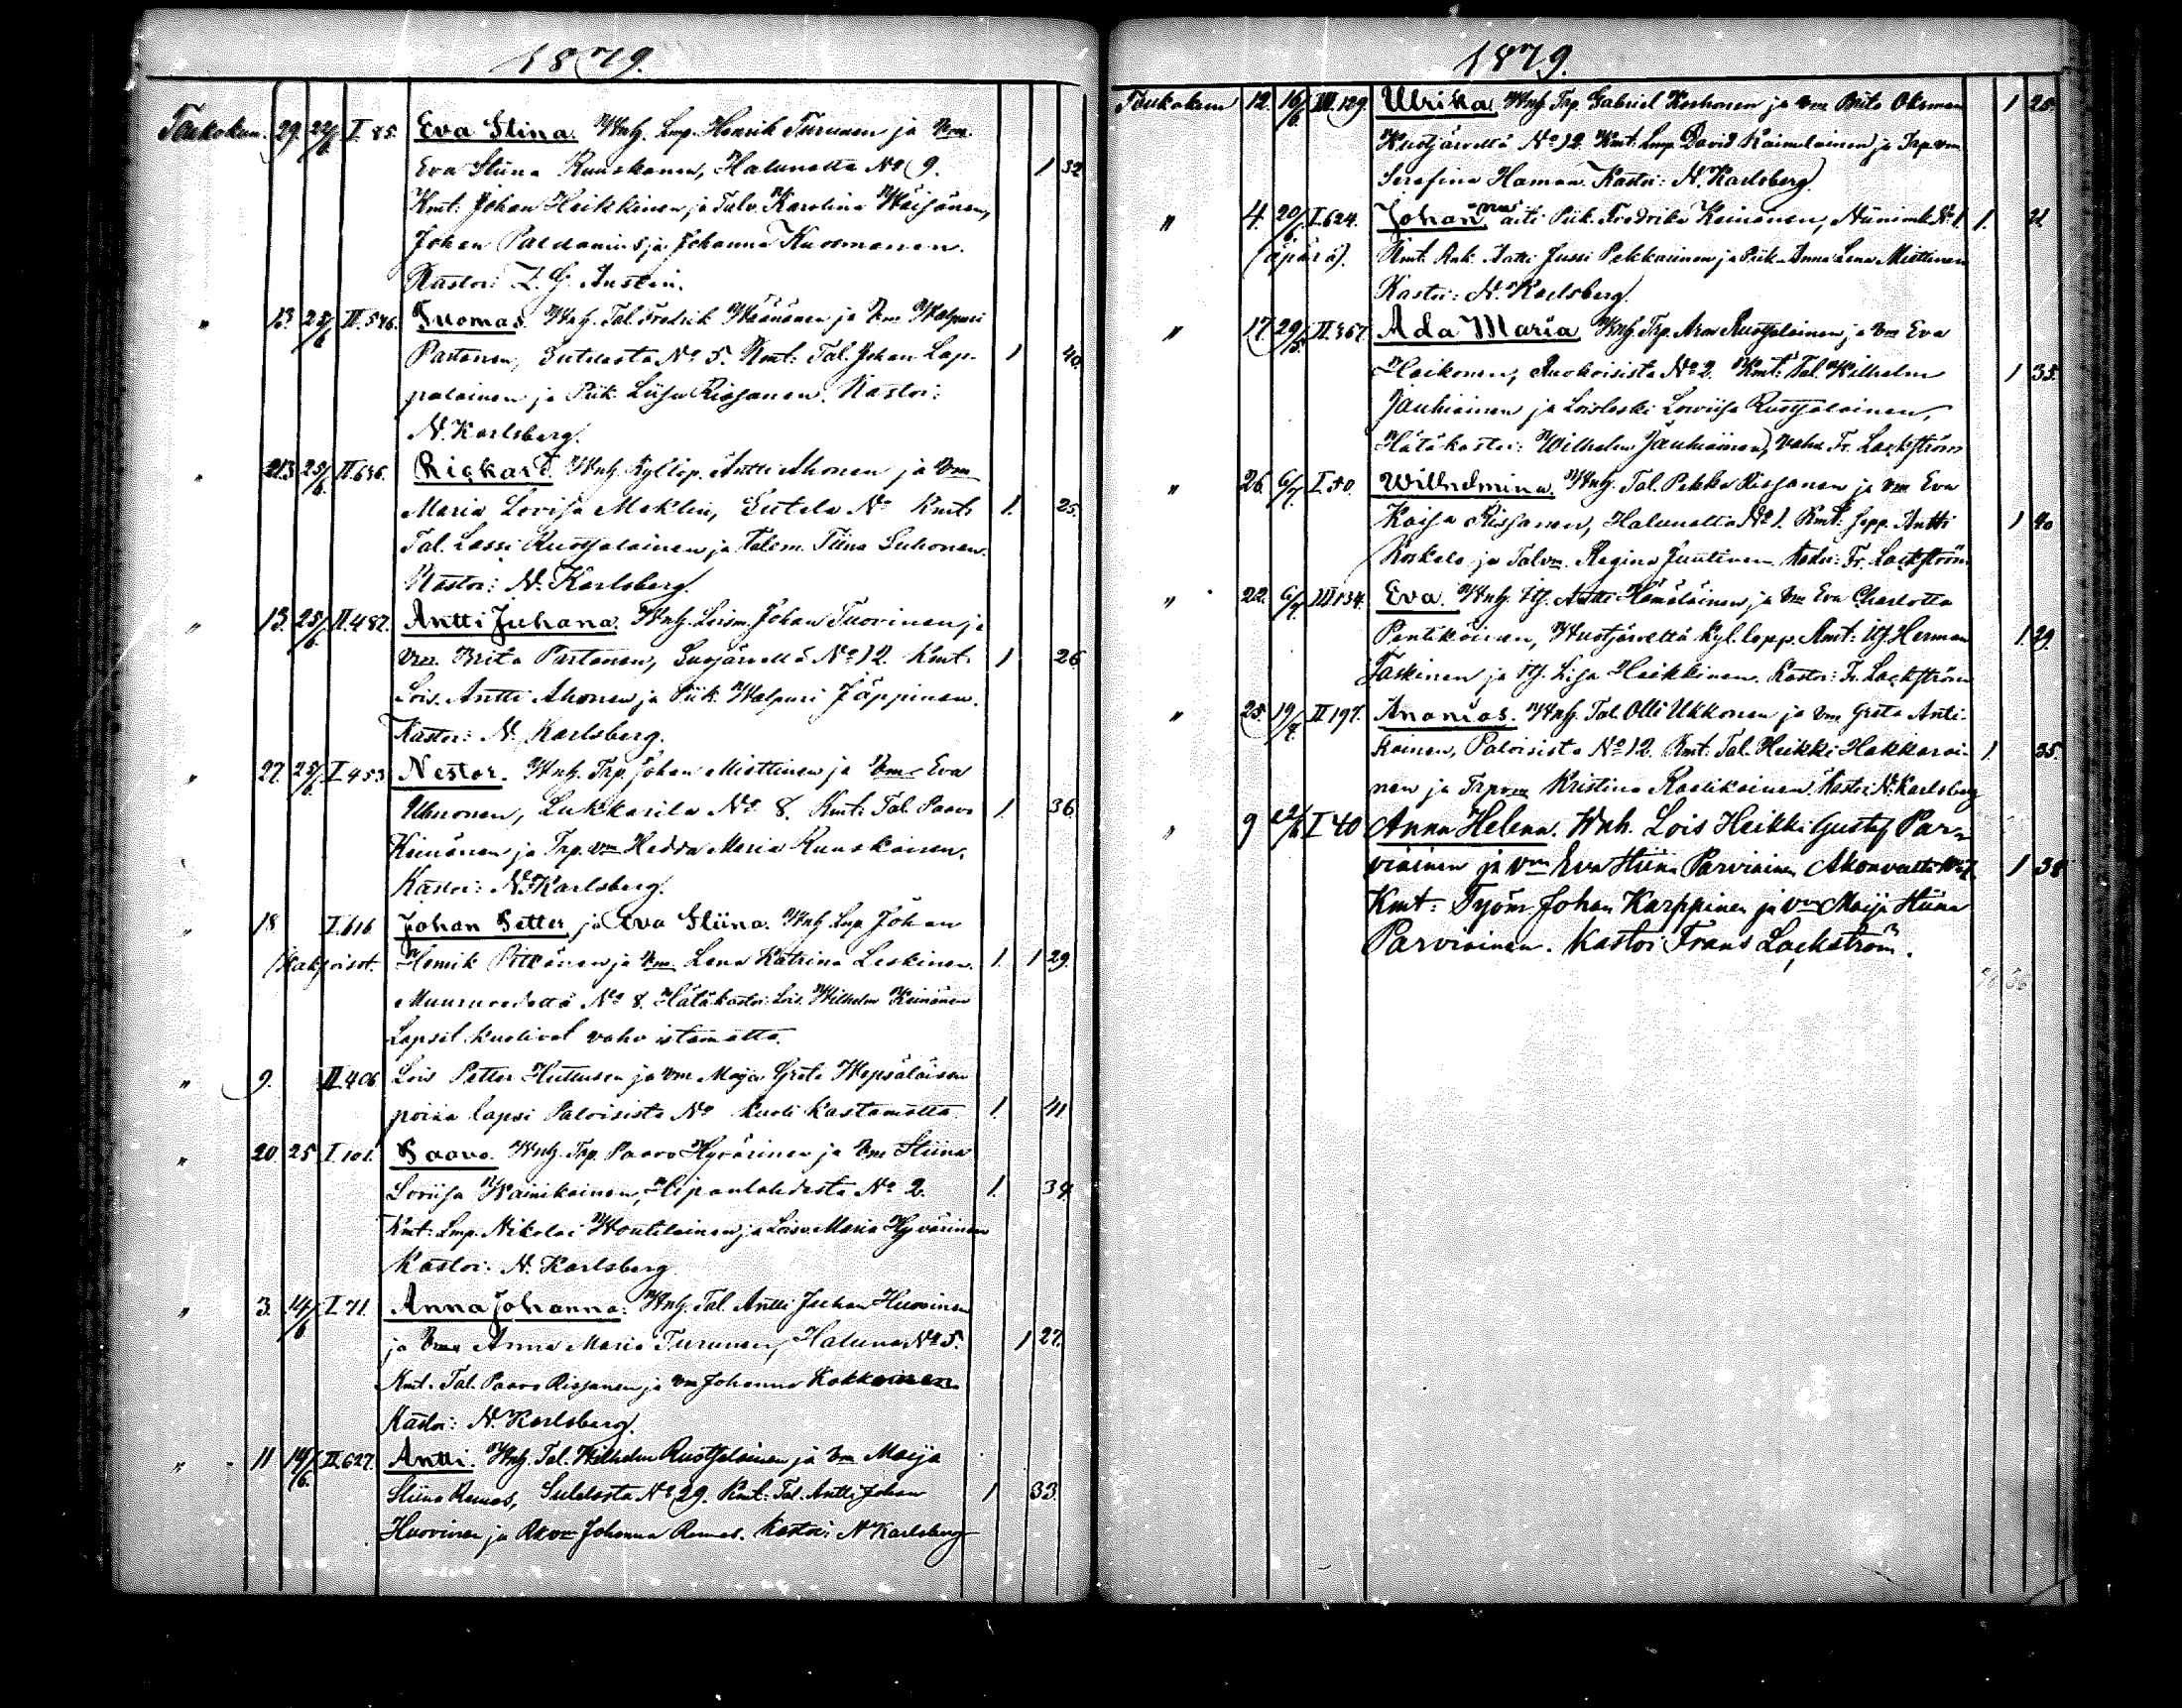 1879.
Toukokuu. 29. 22/6 I 85. Eva Stina. Wnh. Lmp. Henrik Turunen ja Vm.
Eva Stiina Ruuskanen, Halunalta No 9. 1 32
Kmt: Johan Heikkinen ja Talv. Karolina Väisänen,
Johan Paldanius ja Johanna Kuosmanen.
Kastoi:
" 13. 25/6 II.546. Tuomas. Wnh. Tal. Fredrik Väänänen ja Vm Walpuri
Partanen, Sutelasta No 5. Kmt: Tal. Johan Lap- 1 40.
palainen ja Piik. Liisa Rissanen. Kastoi:
N. Karlsberg.
" 23 25/6 II 636. Rickard. Wnh. Antti Ahonen ja Vm
Maria Lovisa Meklin, Sutela No Kmt: 1. 25.
Tal. Lassi Ruotsalainen ja Talem. Tiina Suhonen.
Kastoi: N. Karlsberg.
" 13. 25/6 II.487. Antti Juhana. Wnh. Loism. Johan Tuovinen ja
Vm. Brita Partanen, Suojärveltä No 12. Kmt. 1 26
Lois. Antti Ahonen ja Piik. Walpuri Jäppinen.
Kastoi: N. Karlsberg.
" 27. 25/6 I 453 Nestor. Wnh. Trp. Johan Miettinen ja Vm Eva
Uhnonen, Lukkarila No 8. Kmt: Tal. Paavo 1. 36.
Keinänen ja Trp. vm Hedda Maria Ruuskainen.
Kastoi: N. Karlsberg.
" 18 I.616 Johan Petter ja Eva Stiina. Wnh. Lmp. Johan
(Kaksoiset. Henrik Pitkänen ja Vm. Lena Katrina Leskinen. 1. 1 29.
Muuruvedeltä No 8. Hätäkastoi: Lois. Wilhelm Keinänen
Lapset kuolivat vahvistamatta.
" 9. II.406 Lois Petter Huttusen ja vm Maija Greta Hepsäläisen
poika lapsi Paloisista No kuoli kastamatta. 1. 41
" 20 25 I.101. Paavo. Wnh. Trp. Paavo Hyvärinen ja Vm Stiina
Loviisa Wainikainen, No 2. 1. 34.
Kmt: Lmp. Nikolai Woutilainen ja Loisv. Maria Hyvärinen
Kastoi: N. Karlsberg
" 3. 14/6 I 71. Anna Johanna. Wnh. Tal. Antti Juhan Huovinen
ja Vm Anna Maria Turunen, Haluna No 5. 1 27.
Kmt. Tal. Paavo Rissanen ja vm Johanna Kokkoinen.
Kastoi: N. Karlsberg.
" 11 14/6 II.627. Antti. Wnh. Tal. Wilhelm Ruotsalainen ja Vm Maija
Stiina Remes, No 29. Kmt: Tal. Antti Johan 1 33.
Huovinen ja Johanna Remes. Kastoi N Karlsberg
1879.
Toukokuu 12. 16/6 III 129. Ulrika. Wnh. Trp. Gabriel Korhonen ja Vm Brita Oksman 1 25.
Wuotjärveltä No 12. Kmt: Lmp. David Raimulainen ja Trp. vm
Serafina Haman. Kastoi: N. Karlsberg.
" 4. 20/6 I.624. Johan, äiti Piik. Fredrika Keinänen, No 1. 1. 21.
(äpärä). Kmt. Jussi Pekkarinen ja Piik. Anna Lena Miettinen
Kastoi: N. Karlsberg.
" 17. 29/5 II.367. Ada Maria. Wnh. Trp. Aron Ruotsalainen ja Vm Eva
Haikonen, Ruokoisista No 2. Kmt: Tal. Wilhelm 1 35.
Jauhiainen ja Loisleski Loviisa Ruotsalainen,
Hätäkastoi: Wilhelm Jauhiainen, vahv. Fr. Lackström
" 26. 6/7 I.50. Wilhelmina. Wnh. Tal. Pekka Rissanen ja Vm Eva
Kaisa Rissanen, Halunalta No 1. Kmt. Sepp. Antti 1 40
Koskelo ja Talvm. Regina Juutinen. Kastoi: Fr. Lackström
" 22. 6/7 III 134. Eva. Wnh. Itj. Antti Hämäläinen ja Vm Eva Charlotta
Pentikäinen, Wuotjärveltä Kmt: Itj. Herman 1. 29.
Taskinen ja Itj. Lisa Heikkinen. Kastoi: Fr. Lackström
" 25. 19/7 II 197. Ananias. Wnh. Tal. Olli Ukkonen ja Vm Greta Anti-
kainen, Paloisista No 12. Kmt: Tal. Heikki Hakkarai- 1. 35.
nen ja Trpvm Kristina Raatikainen. Kastoi N. Karlsberg
" 9 22/6 I 40 Anna Helena. Wnh. Lois Heikki Gustaf Par-
viainen ja vm Eva Stiina Parviainen 1 38
Kmt: Työm Johan Karppinen ja vm Maija Stiina
Parviainen. Kastoi Frans Lackström.